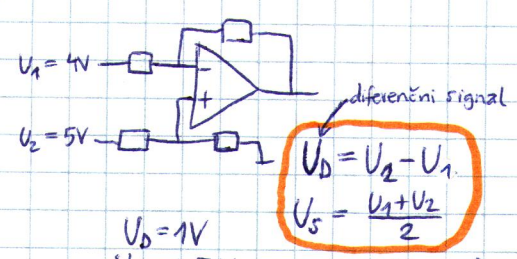 U₁ = 4V
−
+
U₂ = 5V
diferenčni signal
U_D = U₂ − U₁
U_S = (U₁+U₂)/2
U_D = 1V